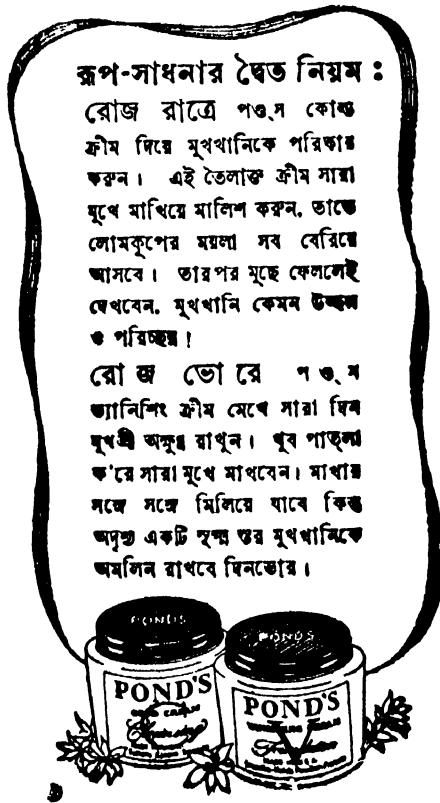 রূপ-সাধনার দ্বৈত নিয়ম :
রোজ রাত্রে পণ্ড্‌স কোল্ড
ক্রীম দিয়ে মুখখানিকে পরিষ্কার
করুন। এই তৈলাক্ত ক্রীম সারা
মুখে মাখিয়ে মালিশ করুন, তাতে
লোমকূপের ময়লা সব বেরিয়ে
আসবে। তারপর মুছে ফেললেই
দেখবেন, মুখখানি কেমন উজ্জ্বল
ও পরিচ্ছন্ন!
রোজ ভোরে পণ্ড্‌স
ভ্যানিশিং ক্রীম মেখে সারা দিন
মুখশ্রী অক্ষুণ্ণ রাখুন। খুব পাত্‌লা
ক'রে সারা মুখে মাখবেন। মাখার
সঙ্গে সঙ্গে মিলিয়ে যাবে কিন্তু
অদৃশ্য একটি সূক্ষ্ম স্তর মুখখানিকে
অমলিন রাখবে দিনভোর।
POND'S
POND'S
POND'S
COLD CREAM
POND'S
VANISHING CREAM